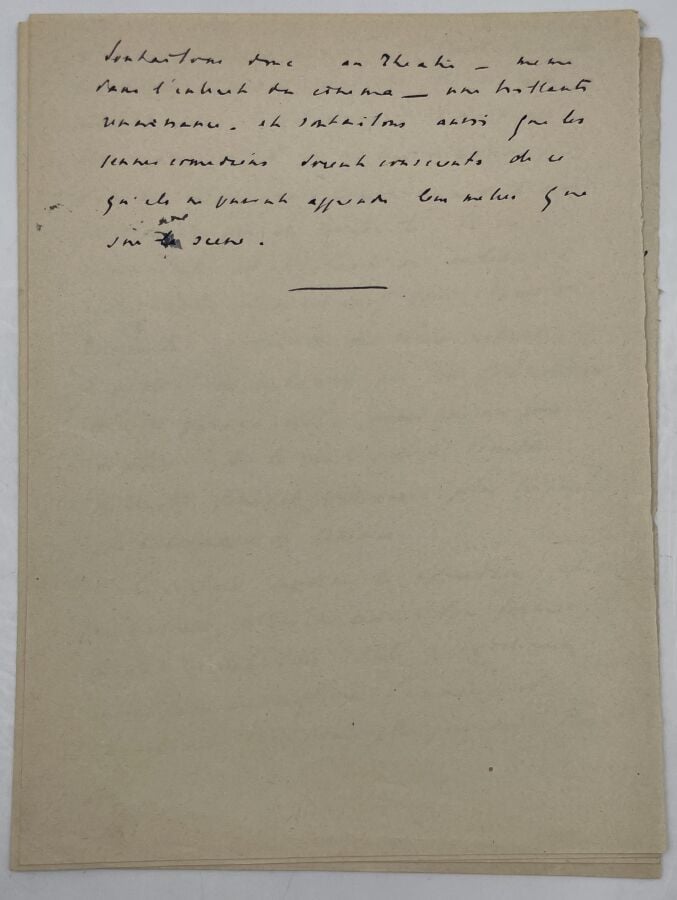 Souhaitons donc au Théatre — meme
dans l'intéret du cinema — une brillante
renaissance. et souhaitons aussi que les
jeunes comediens soient conscients de ce
qu'ils ne peuvent apprendre leur metier que
sur une scene.